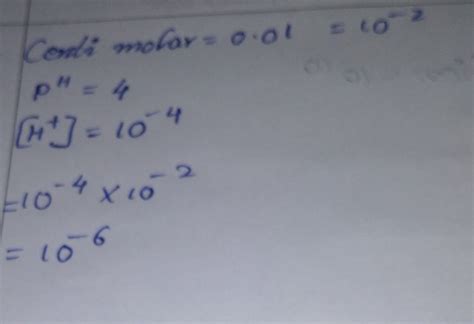 molar = 0.01 = 10⁻²
pᴴ = 4
[H⁺] = 10⁻⁴
= 10⁻⁴ × 10⁻²
= 10⁻⁶